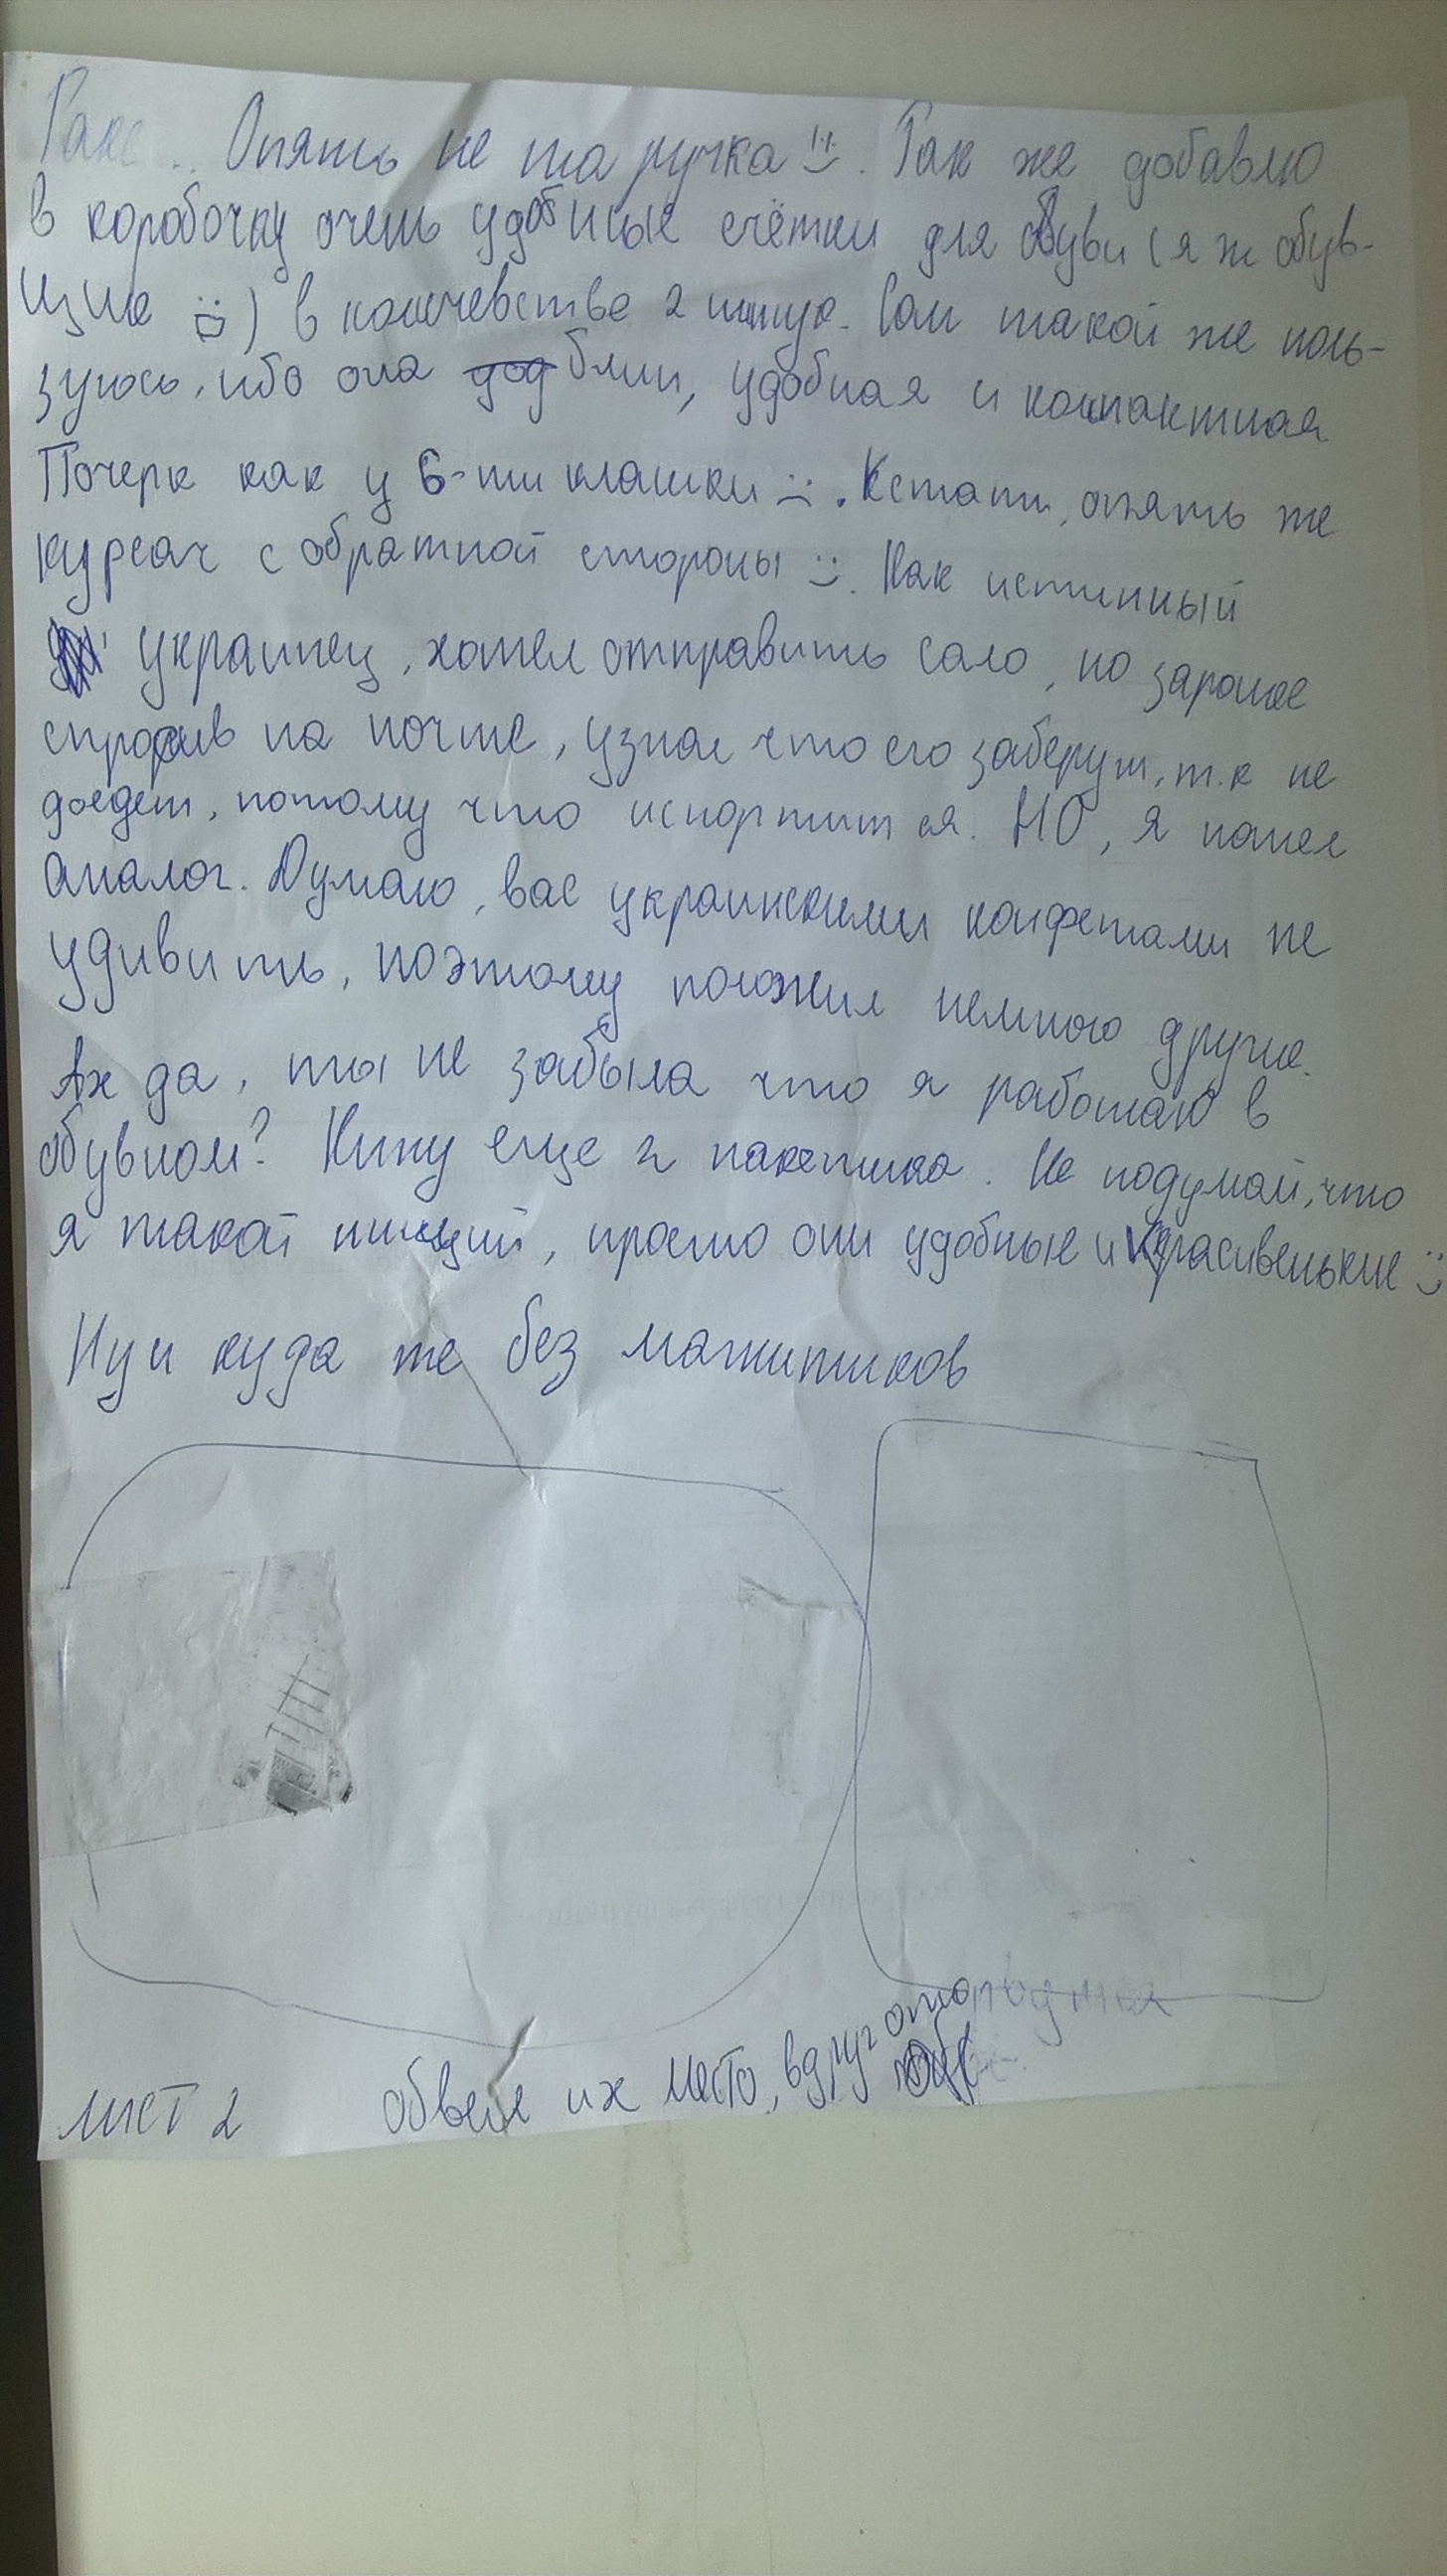 Такс... Опять не та ручка :). Так же добавлю
в коробочку очень удобные счётки для обуви (я ж обув-
щик :D) в количевстве 2 штук. Сам такой же поль-
зуюсь, ибо она блин, удобная и компактная
Почерк как у 6-ти клашки :(. Кстати, опять же
курсач с обратной стороны :). Как истинный
украинец, хотел отправить сало, но заранее
спросив на почте, узнал что его заберут, т.к не
доедет, потому что испортится. НО, я нашел
аналог. Думаю, вас украинскими конфетами не
удивить, поэтому положил немного другие.
Ах да, ты не забыла что я работаю в
обувном? Кину еще 2 пакетика. Не подумай, что
я такой нищий, просто они удобные и красивенькие :)
Ну и куда же без магнитиков
обвел их место, вдруг оторвутся
лист 2